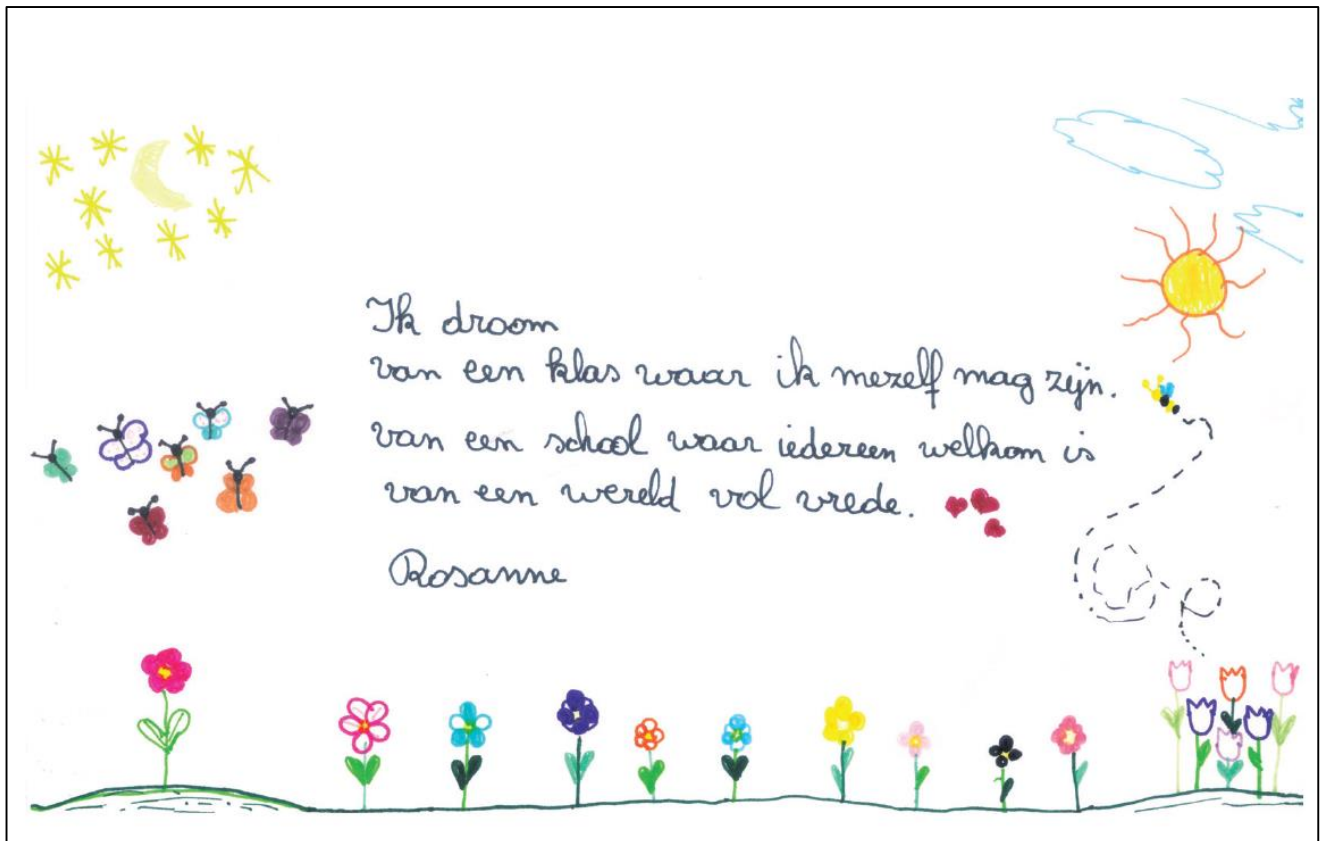 Ik droom
van een klas waar ik mezelf mag zijn.
van een school waar iedereen welkom is
van een wereld vol vrede.
Rosanne